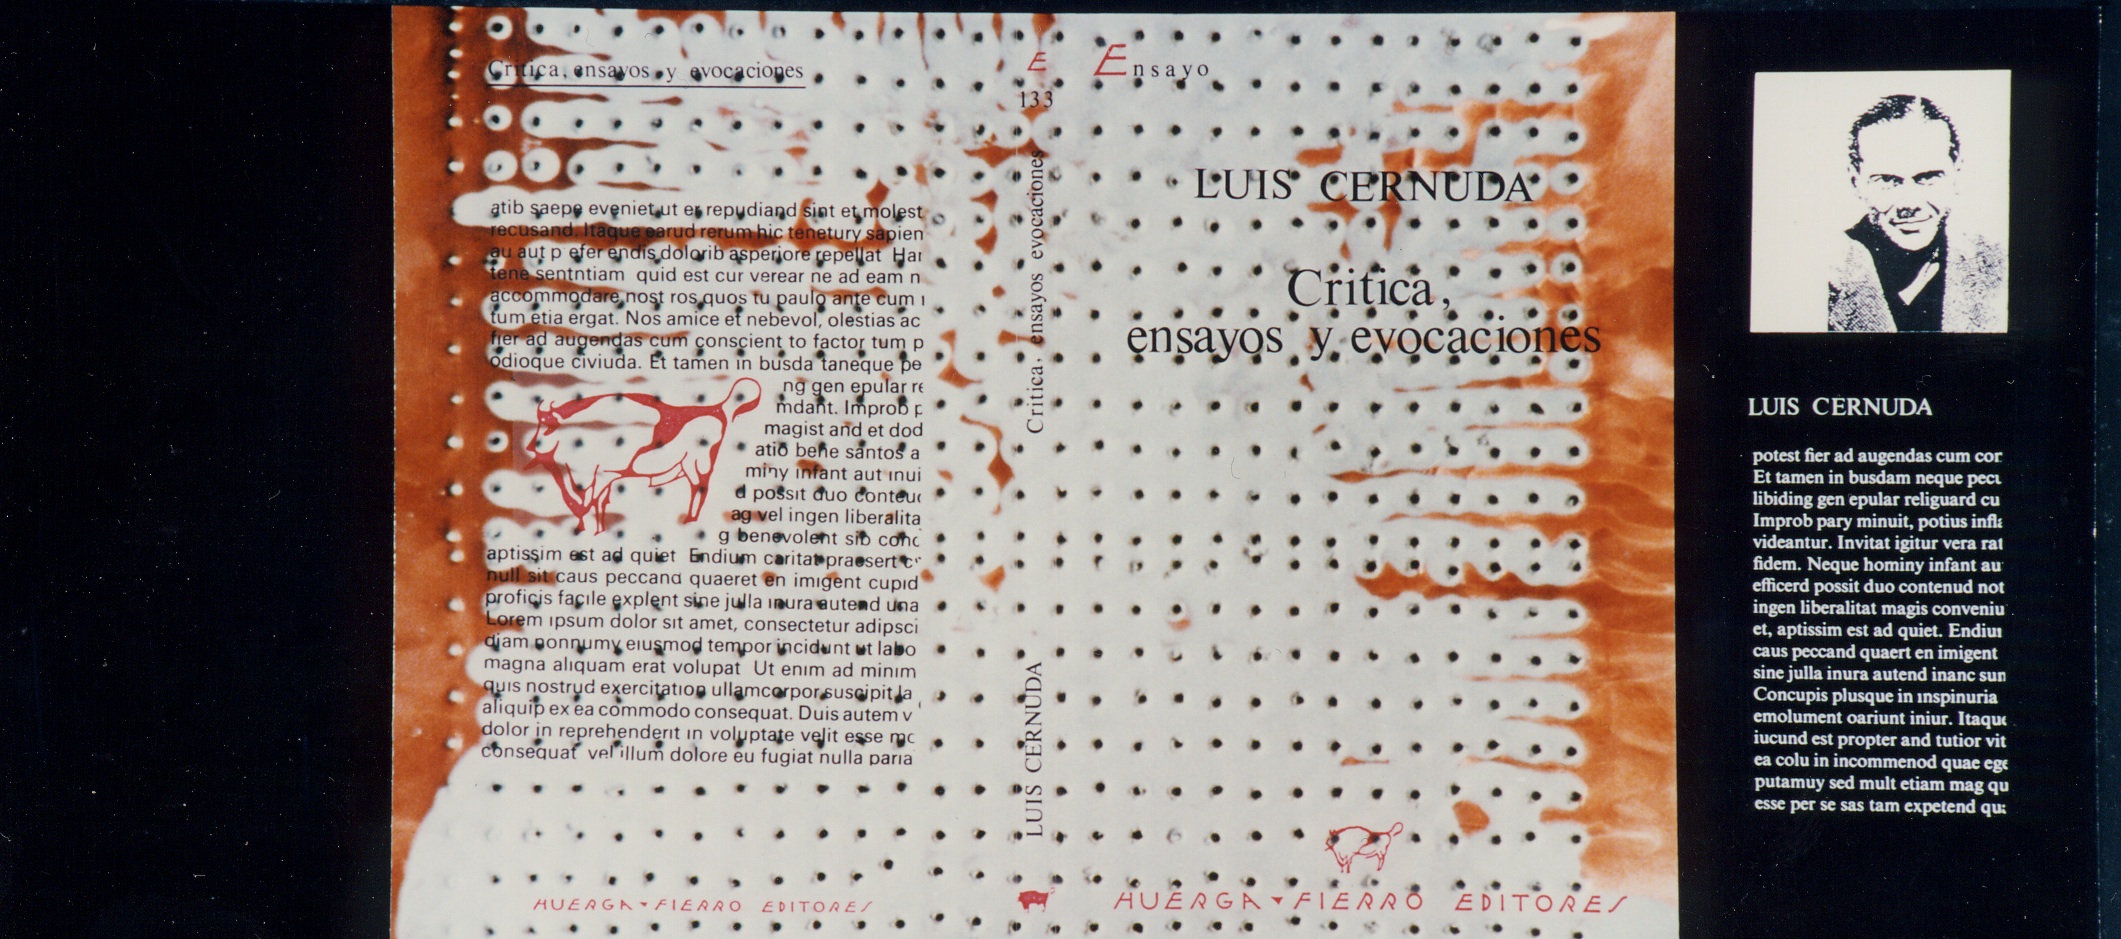 Critica, ensayos y evocaciones
atib saepe eveniet ut er repudiand sint et molest
recusand. Itaque earud rerum hic tenetury sapien
au aut p efer endis dolorib asperiore repellat Har
tene sentntiam quid est cur verear ne ad eam n
accommodare nost ros quos tu paulo ante cum
tum etia ergat. Nos amice et nebevol, olestias ac
fier ad augendas cum conscient to factor tum p
odioque civiuda. Et tamen in busda taneque pe
ng gen epular re
mdant. Improb p
magist and et dod
atio bene santos a
miny infant aut inui
d possit duo conteud
ag vel ingen liberalita
g benevolent sib conc
aptissim est ad quiet Endium caritat praesert c
null sit caus peccand quaeret en imigent cupid
proficis facile explent sine julla inura autend una
Lorem ipsum dolor sit amet, consectetur adipsci
diam nonnumy eiusmod tempor incidunt ut labo
magna aliquam erat volupat Ut enim ad minim
quis nostrud exercitation ullamcorpor suscipit la
aliquip ex ea commodo consequat. Duis autem v
dolor in reprehenderit in voluptate velit esse mo
consequat vel illum dolore eu fugiat nulla paria
HUERGA FIERRO EDITORES
E
133
Critica, ensayos evocaciones
LUIS CERNUDA
Ensayo
LUIS CERNUDA
Critica,
ensayos y evocaciones
HUERGA FIERRO EDITORES
LUIS CERNUDA
potest fier ad augendas cum cor
Et tamen in busdam neque pecu
libiding gen epular religuard cu
Improb pary minuit, potius infla
videantur. Invitat igitur vera rat
fidem. Neque hominy infant au
efficerd possit duo contenud not
ingen liberalitat magis conveniu
et, aptissim est ad quiet. Endiu
caus peccand quaert en imigent
sine julla inura autend inanc sun
Concupis plusque in inspinuria
emolument oariunt iniur. Itaque
iucund est propter and tutior vit
ea colu in incommenod quae ege
putamuy sed mult etiam mag qu
esse per se sas tam expetend qu